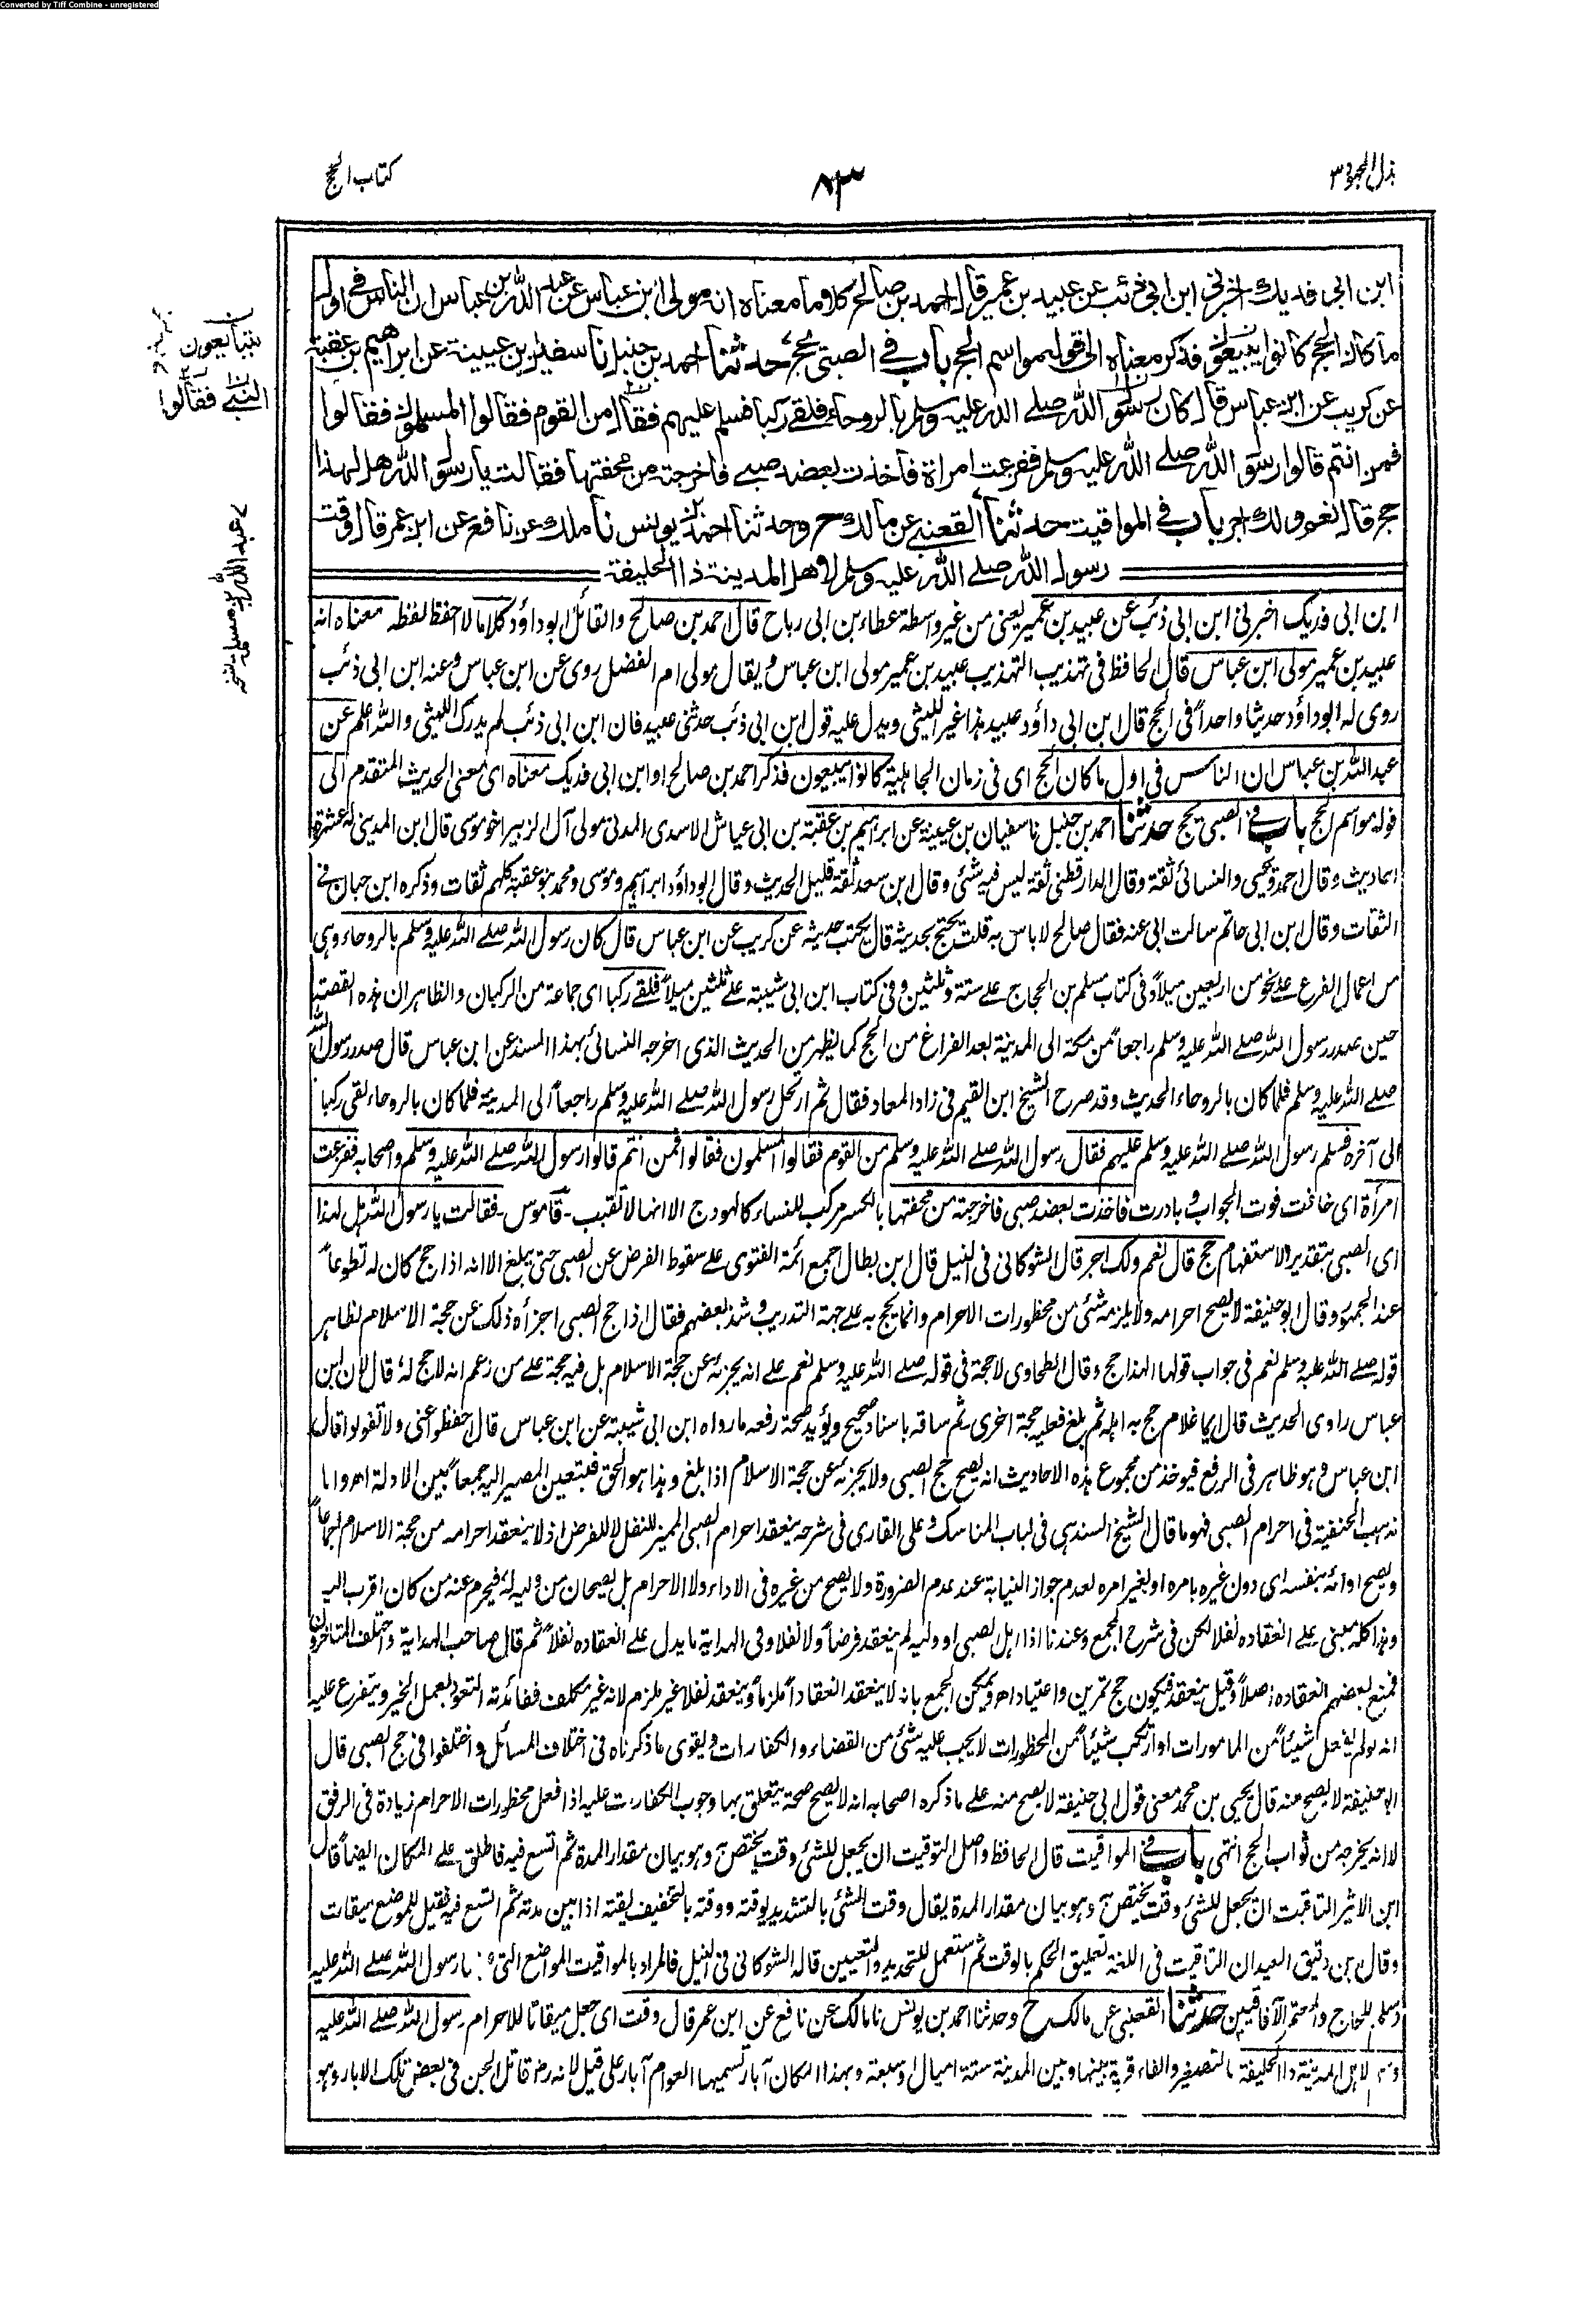 Converted by Tiff Combine - unregistered
بذل المجهود ٣
٨٣
كتاب الحج
ابن ابى فديك اخبرنى ابن ابى ذئب عن عبيد بن عمير قال احمد بن صالح كلاما معناه انه مولى ابن عباس عن عبد الله بن عباس ان الناس فى اول
ما كان الحج كانوا يبيعون فذكر معناه الى قوله مواسم الحج باب فى الصبى يحج حدثنا احمد بن حنبل نا سفين بن عيينة عن ابراهيم بن عقبة
عن كريب عن ابن عباس قال كان رسول الله صلى الله عليه وسلم بالروحاء فلقى ركبا فسلم عليهم فقال من القوم فقالوا المسلمون فقالوا
فمن انتم قالوا رسول الله صلى الله عليه وسلم ففزعت امرأة فاخذت بعضد صبى فاخرجته من محفتها فقالت يا رسول الله هل لهذا
حج قال نعم ولك اجر باب فى المواقيت حدثنا القعنبى عن مالك ح وحدثنا احمد بن يونس نا ملك عن نافع عن ابن عمر قال وقت
رسول الله صلى الله عليه وسلم لاهل المدينة ذا الحليفة
يتبايعون
النبى فقالوا
عبد الله بن مسلمة نسخه
ابن ابى فديك اخبرنى ابن ابى ذئب عن عبيد بن عمير يعنى من غير واسطة عطاء بن ابى رباح قال احمد بن صالح والقائل ابو داؤد كلاما لا احفظ لفظه معناه انه
عبيد بن عمير مولى ابن عباس قال الحافظ فى تهذيب التهذيب عبيد بن عمير مولى ابن عباس ويقال مولى ام الفضل روى عن ابن عباس وعنه ابن ابى ذئب
روى له ابو داؤد حديثا واحداً فى الحج قال ابن ابى داؤد عبيد هذا غير الليثى ويدل عليه قول ابن ابى ذئب حدثنى عبيد فان ابن ابى ذئب لم يدرك الليثى والله اعلم عن
عبد الله بن عباس ان الناس فى اول ما كان الحج اى فى زمان الجاهلية كانوا يبيعون فذكر احمد بن صالح او ابن ابى فديك معناه اى معنى الحديث المتقدم الى
قوله مواسم الحج باب فى الصبى يحج حدثنا احمد بن حنبل نا سفيان بن عيينة عن ابراهيم بن عقبة بن ابى عياش الاسدى المدنى مولى آل الزبير اخو موسى قال ابن المدينى له عشرة
احاديث وقال احمد ويحيى والنسائى ثقة وقال الدارقطنى ثقة ليس فيه شئ وقال ابن سعد ثقة قليل الحديث وقال ابو داؤد ابراهيم وموسى ومحمد بنو عقبة كلهم ثقات وذكره ابن حبان فى
الثقات وقال ابن ابى حاتم سالت ابى عنه فقال صالح لا باس به قلت يحتج بحديثه قال يكتب حديثه عن كريب عن ابن عباس قال كان رسول الله صلى الله عليه وسلم بالروحاء وهى
من اعمال الفرع على نحو من اربعين ميلاً وفى كتاب مسلم بن الحجاج على ستة وثلثين وفى كتاب ابن ابى شيبة على ثلثين ميلاً فلقى ركبا اى جماعة من الركبان والظاهر ان هذه القصة
حين صدر رسول الله صلى الله عليه وسلم راجعاً من مكة الى المدينة بعد الفراغ من الحج كما يظهر من الحديث الذى اخرجه النسائى بهذا السند عن ابن عباس قال صدر رسول الله
صلى الله عليه وسلم فلما كان بالروحاء الحديث وقد صرح الشيخ ابن القيم فى زاد المعاد فقال ثم ارتحل رسول الله صلى الله عليه وسلم راجعاً الى المدينة فلما كان بالروحاء لقى ركبا
الى آخره فسلم رسول الله صلى الله عليه وسلم عليهم فقال رسول الله صلى الله عليه وسلم من القوم فقالوا المسلمون فقالوا فمن انتم قالوا رسول الله صلى الله عليه وسلم واصحابه ففزعت
امرأة اى خافت فوت الجواب وبادرت فاخذت بعضد صبى فاخرجته من محفتها بالكسر مركب للنساء كالهودج الا انها لا تقبب - قاموس - فقالت يا رسول الله هل لهذا
اى الصبى بتقدير الاستفهام حج قال نعم ولك اجر قال الشوكانى فى النيل قال ابن بطال اجمع ائمة الفتوى على سقوط الفرض عن الصبى حتى يبلغ الا انه اذا حج كان له تطوعاً
عند الجمهور وقال ابو حنيفة لا يصح احرامه ولا يلزمه شئ من محظورات الاحرام وانما يحج به على جهة التدريب وشذ بعضهم فقال اذا حج الصبى اجزأه ذلك عن حجة الاسلام لظاهر
قوله صلى الله عليه وسلم نعم فى جواب قولها الهذا حج وقال الطحاوى لا حجة فى قوله صلى الله عليه وسلم نعم على انه يجزئه عن حجة الاسلام بل فيه حجة على من زعم انه لا حج له قال لان ابن
عباس راوى الحديث قال ايما غلام حج به اهله ثم بلغ فعليه حجة اخرى ثم ساقه باسناد صحيح ويؤيد صحة رفعه ما رواه ابن ابى شيبة عن ابن عباس قال احفظوا عنى ولا تقولوا قال
ابن عباس وهو ظاهر فى الرفع فيوخذ من مجموع هذه الاحاديث انه يصح حج الصبى ولا يجزئه عن حجة الاسلام اذا بلغ وهذا هو الحق فيتعين المصير اليه جمعاً بين الادلة اھ واما
مذهب الحنفية فى احرام الصبى فهو ما قال الشيخ السندهى فى لباب المناسك وعلى القارى فى شرحه ينعقد احرام الصبى المميز للنفل لا للفرض اذ لا ينعقد احرامه من حجة الاسلام اجماعاً
ويصح اداؤه بنفسه اى دون غيره بامره او بغير امره لعدم جواز النيابة عند عدم الضرورة ولا يصح من غيره فى الاداء ولا الاحرام بل يصحان من وليه له فيحرم عنه من كان اقرب اليه
وهذا كله مبنى على انعقاده نفلا لكن فى شرح المجمع وعندنا اذا اهل الصبى او وليه لم ينعقد فرضاً ولا نفلا وفى الهداية ما يدل على انعقاده نفلاً ثم قال صاحب الهداية واختلف المتاخرون
فمنع بعضهم انعقاده اصلاً وقيل ينعقد فيكون حج تمرين واعتياد اھ ويمكن الجمع بانه لا ينعقد انعقاداً ملزماً وينعقد نفلا غير ملزم لانه غير مكلف ففائدته التعود بعمل الخير ويتفرع عليه
انه لو لم يفعل شيئاً من المامورات او ارتكب شيئاً من المحظورات لا يجب عليه شئ من القضاء والكفارات ويقوى ما ذكرناه فى اختلاف المسائل واختلفوا فى حج الصبى قال
ابو حنيفة لا يصح منه قال يحيى بن محمد معنى قول ابى حنيفة لا يصح منه على ما ذكره اصحابه انه لا يصح صحة يتعلق بها وجوب الكفارات عليه اذا فعل محظورات الاحرام زيادة فى الرفق
لا انه يخرجه من ثواب الحج انتهى باب فى المواقيت قال الحافظ واصل التوقيت ان يجعل للشئ وقت يختص به وهو بيان مقدار المدة ثم اتسع فيه فاطلق على المكان ايضاً قال
ابن الاثير التاقيت ان يجعل للشئ وقت يختص به وهو بيان مقدار المدة يقال وقت الشئ بالتشديد يوقته ووقته بالتخفيف يقته اذا بين مدته ثم اتسع فيه فقيل للموضع ميقات
وقال ابن دقيق العيد ان التاقيت فى اللغة تعليق الحكم بالوقت ثم استعمل للتحديد والتعيين قاله الشوكانى فى النيل فالمراد بالمواقيت المواضع التى رسول الله صلى الله عليه
وسلم للحاج والمعتمر الآفاقيين حدثنا القعنبى عن مالك ح وحدثنا احمد بن يونس نا مالك عن نافع عن ابن عمر قال وقت اى جعل ميقاتا للاحرام رسول الله صلى الله عليه
وسلم لاهل المدينة ذا الحليفة بالتصغير والفاء قرية بينها وبين المدينة ستة اميال او سبعة وبهذا المكان آبار تسميها العوام آبار على قيل لانه رضـ قاتل الجن فى بعض تلك الابار وهو